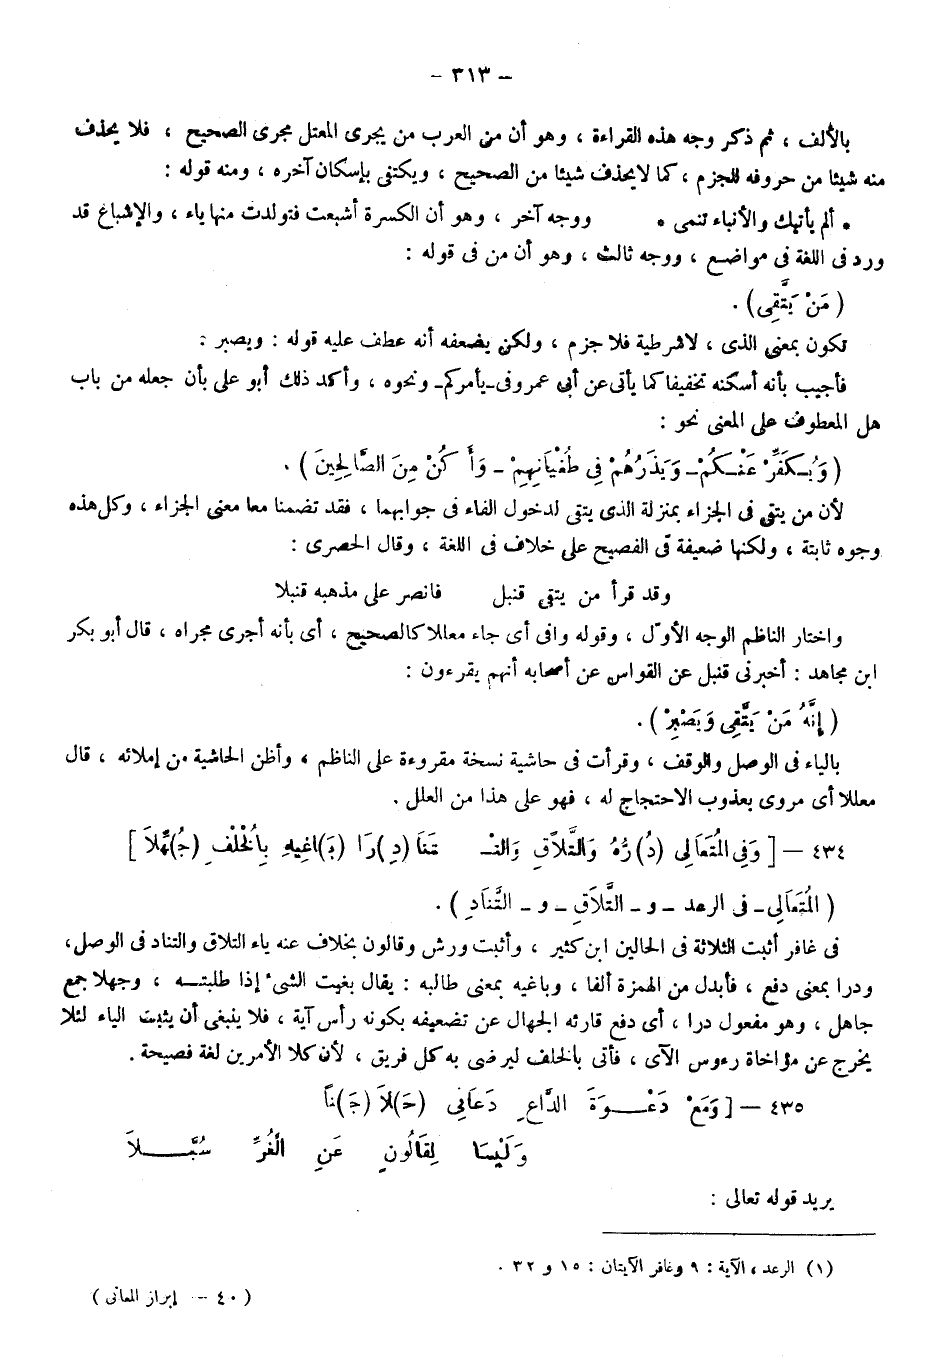 – ٣١٣ –
بالألف ، ثم ذكر وجه هذه القراءة ، وهو أن من العرب من يجرى المعتل مجرى الصحيح ، فلا يحذف
منه شيئا من حروفه للجزم ، كما لايحذف شيئا من الصحيح ، ويكتفى بإسكان آخره ، ومنه قوله :
* ألم يأتيك والأنباء تنمى * ووجه آخر ، وهو أن الكسرة أشبعت فتولدت منها ياء ، والإشباغ قد
ورد فى اللغة فى مواضع ، ووجه ثالث ، وهو أن من فى قوله :
( مَنْ يَتَّقِى ) .
تكون بمعنى الذى ، لاشرطية فلا جزم ، ولكن يضعفه أنه عطف عليه قوله : ويصبر :
فأجيب بأنه أسكنه تخفيفا كما يأتى عن أبى عمرو فى ـ يأمركم ـ ونحوه ، وأكد ذلك أبو على بأن جعله من باب
هل المعطوف على المعنى نحو :
( وَيُـكَفِّرْ عَنْـكُمْ ـ وَيَذَرُهُمْ فِى طُغْيَانِهِمْ ـ وَأَكُنْ مِنَ الصَّالِحِينَ ) .
لأن من يتقى فى الجزاء بمنزلة الذى يتقى لدخول الفاء فى جوابهما ، فقد تضمنا معا معنى الجزاء ، وكل هذه
وجوه ثابتة ، ولكنها ضعيفة فى الفصيح على خلاف فى اللغة ، وقال الحصرى :
وقد قرأ من يتقى قنبل فانصر على مذهبه قنبلا
واختار الناظم الوجه الأوّل ، وقوله وافى أى جاء معللا كالصحيح ، أى بأنه أجرى مجراه ، قال أبو بكر
ابن مجاهد : أخبرنى قنبل عن القواس عن أصحابه أنهم يقرءون :
( إِنَّهُ مَنْ يَتَّقِى وَيَصْبِرْ ) .
بالياء فى الوصل والوقف ، وقرأت فى حاشية نسخة مقروءة على الناظم ، وأظن الحاشية من إملائه ، قال
معللا أى مروى بعذوب الاحتجاج له ، فهو على هذا من العلل .
٤٣٤ – [ وَفِى الْمُتَعَالِى (دُ)رُّهُ وَالتَّلَاقِ وَالتْـ تَنَا (دِ)رَا (بَـ)اغِيهِ بِالْخُلْفِ (جُـ)هِّلَا ]
( الْمُتَعَالِى ـ فى الرعد ـ و ـ التَّلَاقِ ـ و ـ التَّنَادِ ) .
فى غافر أثبت الثلاثة فى الحالين ابن كثير ، وأثبت ورش وقالون بخلاف عنه ياء التلاق والتناد فى الوصل،
ودرا بمعنى دفع ، فأبدل من الهمزة ألفا ، وباغيه بمعنى طالبه : يقال بغيت الشىء إذا طلبتـه ، وجهلا جمع
جاهل ، وهو مفعول درا ، أى دفع قارئه الجهال عن تضعيفه بكونه رأس آية ، فلا ينبغى أن يثبت الياء لئلا
يخرج عن مؤاخاة رءوس الآى ، فأتى بالخلف ليرضى به كل فريق ، لأن كلا الأمرين لغة فصيحة .
٤٣٥ – [ وَمَعْ دَعْــوَةَ الدَّاعِ دَعَانِى (حَـ)لَا (جَـ)ناً
وَلَيْسَا لِقَالُونٍ عَنِ الْغُرِّ سُبَّــلَا
يريد قوله تعالى :
(١) الرعد ، الآية : ٩ وغافر الآيتان : ١٥ و ٣٢ .
( ٤٠ – إبراز المعانى )